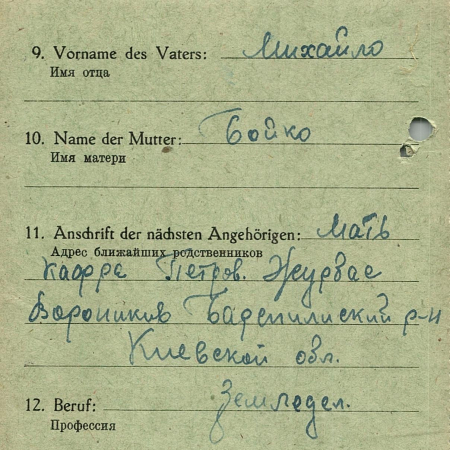 9. Vorname des Vaters: Михайло
Имя отца
10. Name der Mutter: Бойко
Имя матери
11. Anschrift der nächsten Angehörigen: Мать
Адрес ближайших родственников
Петров.
р-н
Киевской обл.
12. Beruf: Земледел.
Профессия